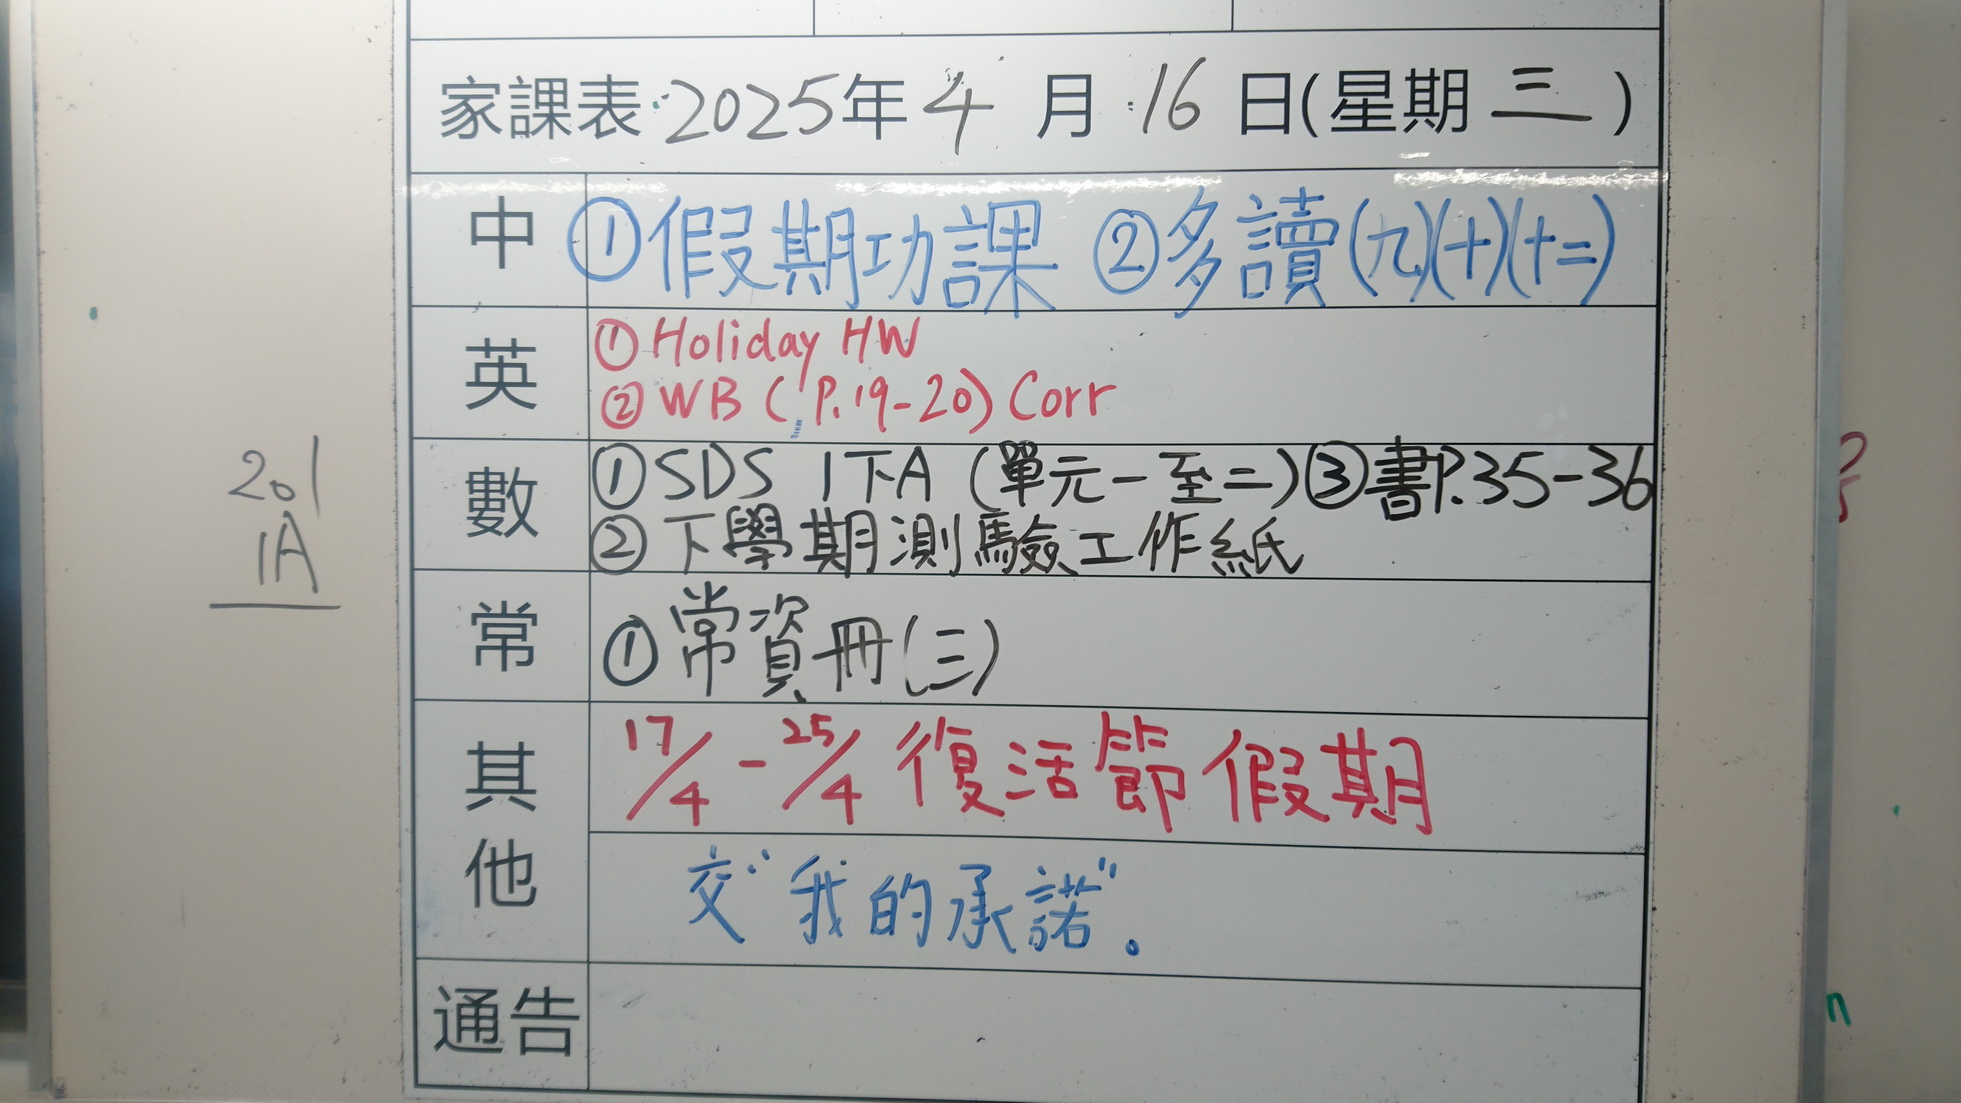 家課表 2025年 4 月 16 日(星期 三 )
中 ①假期功課 ②多讀(九)(十)(十二)
英 ① Holiday HW
② WB ( P.19-20) Corr
數 ① SDS 1下A (單元一至二) ③書P.35-36
② 下學期測驗工作紙
201
1A
常 ① 常資冊(三)
其他 17/4 - 25/4 復活節假期
交"我的承諾"。
通告